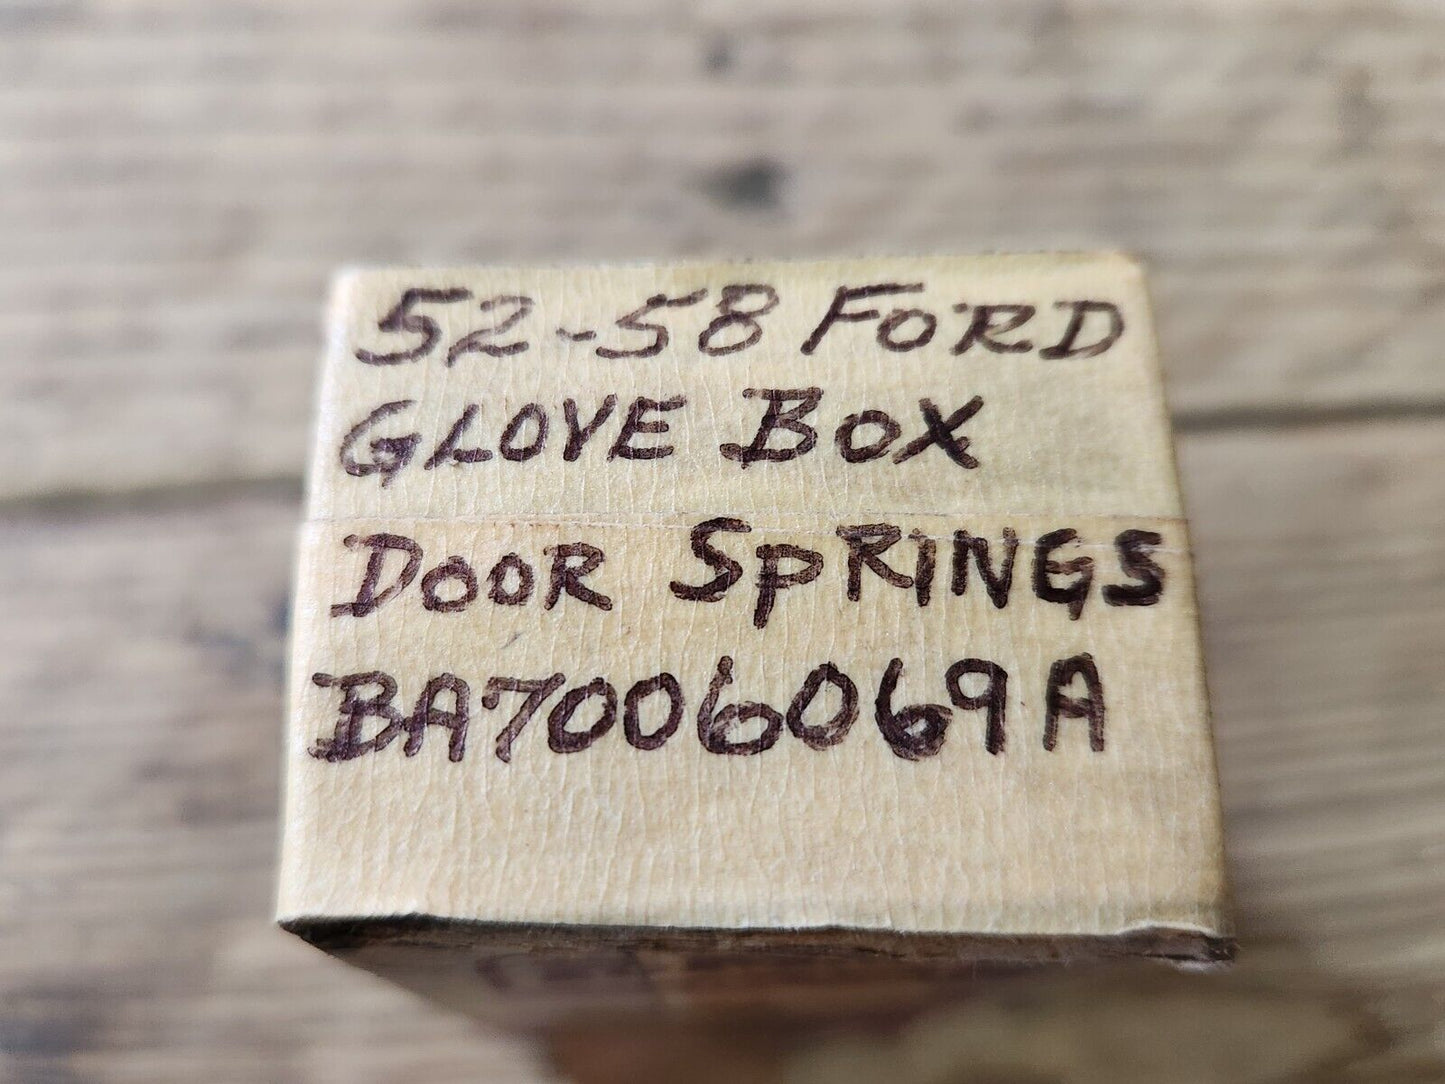 52-58 FORD
GLOVE BOX
DOOR SPRINGS
BA7006069A